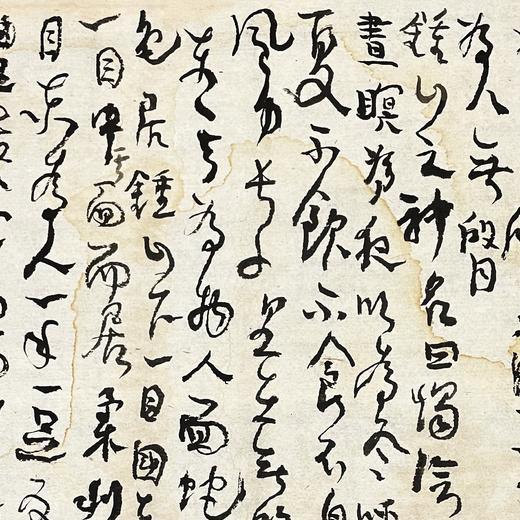 為人無䏿
鍾山之神名曰燭陰
晝瞑為夜吹為冬呼
夏不飲不食不
風身長千里在無
東其為物人面蛇
色居鍾山下一目國在
一目中其面而居柔利
目東為人一手一足反